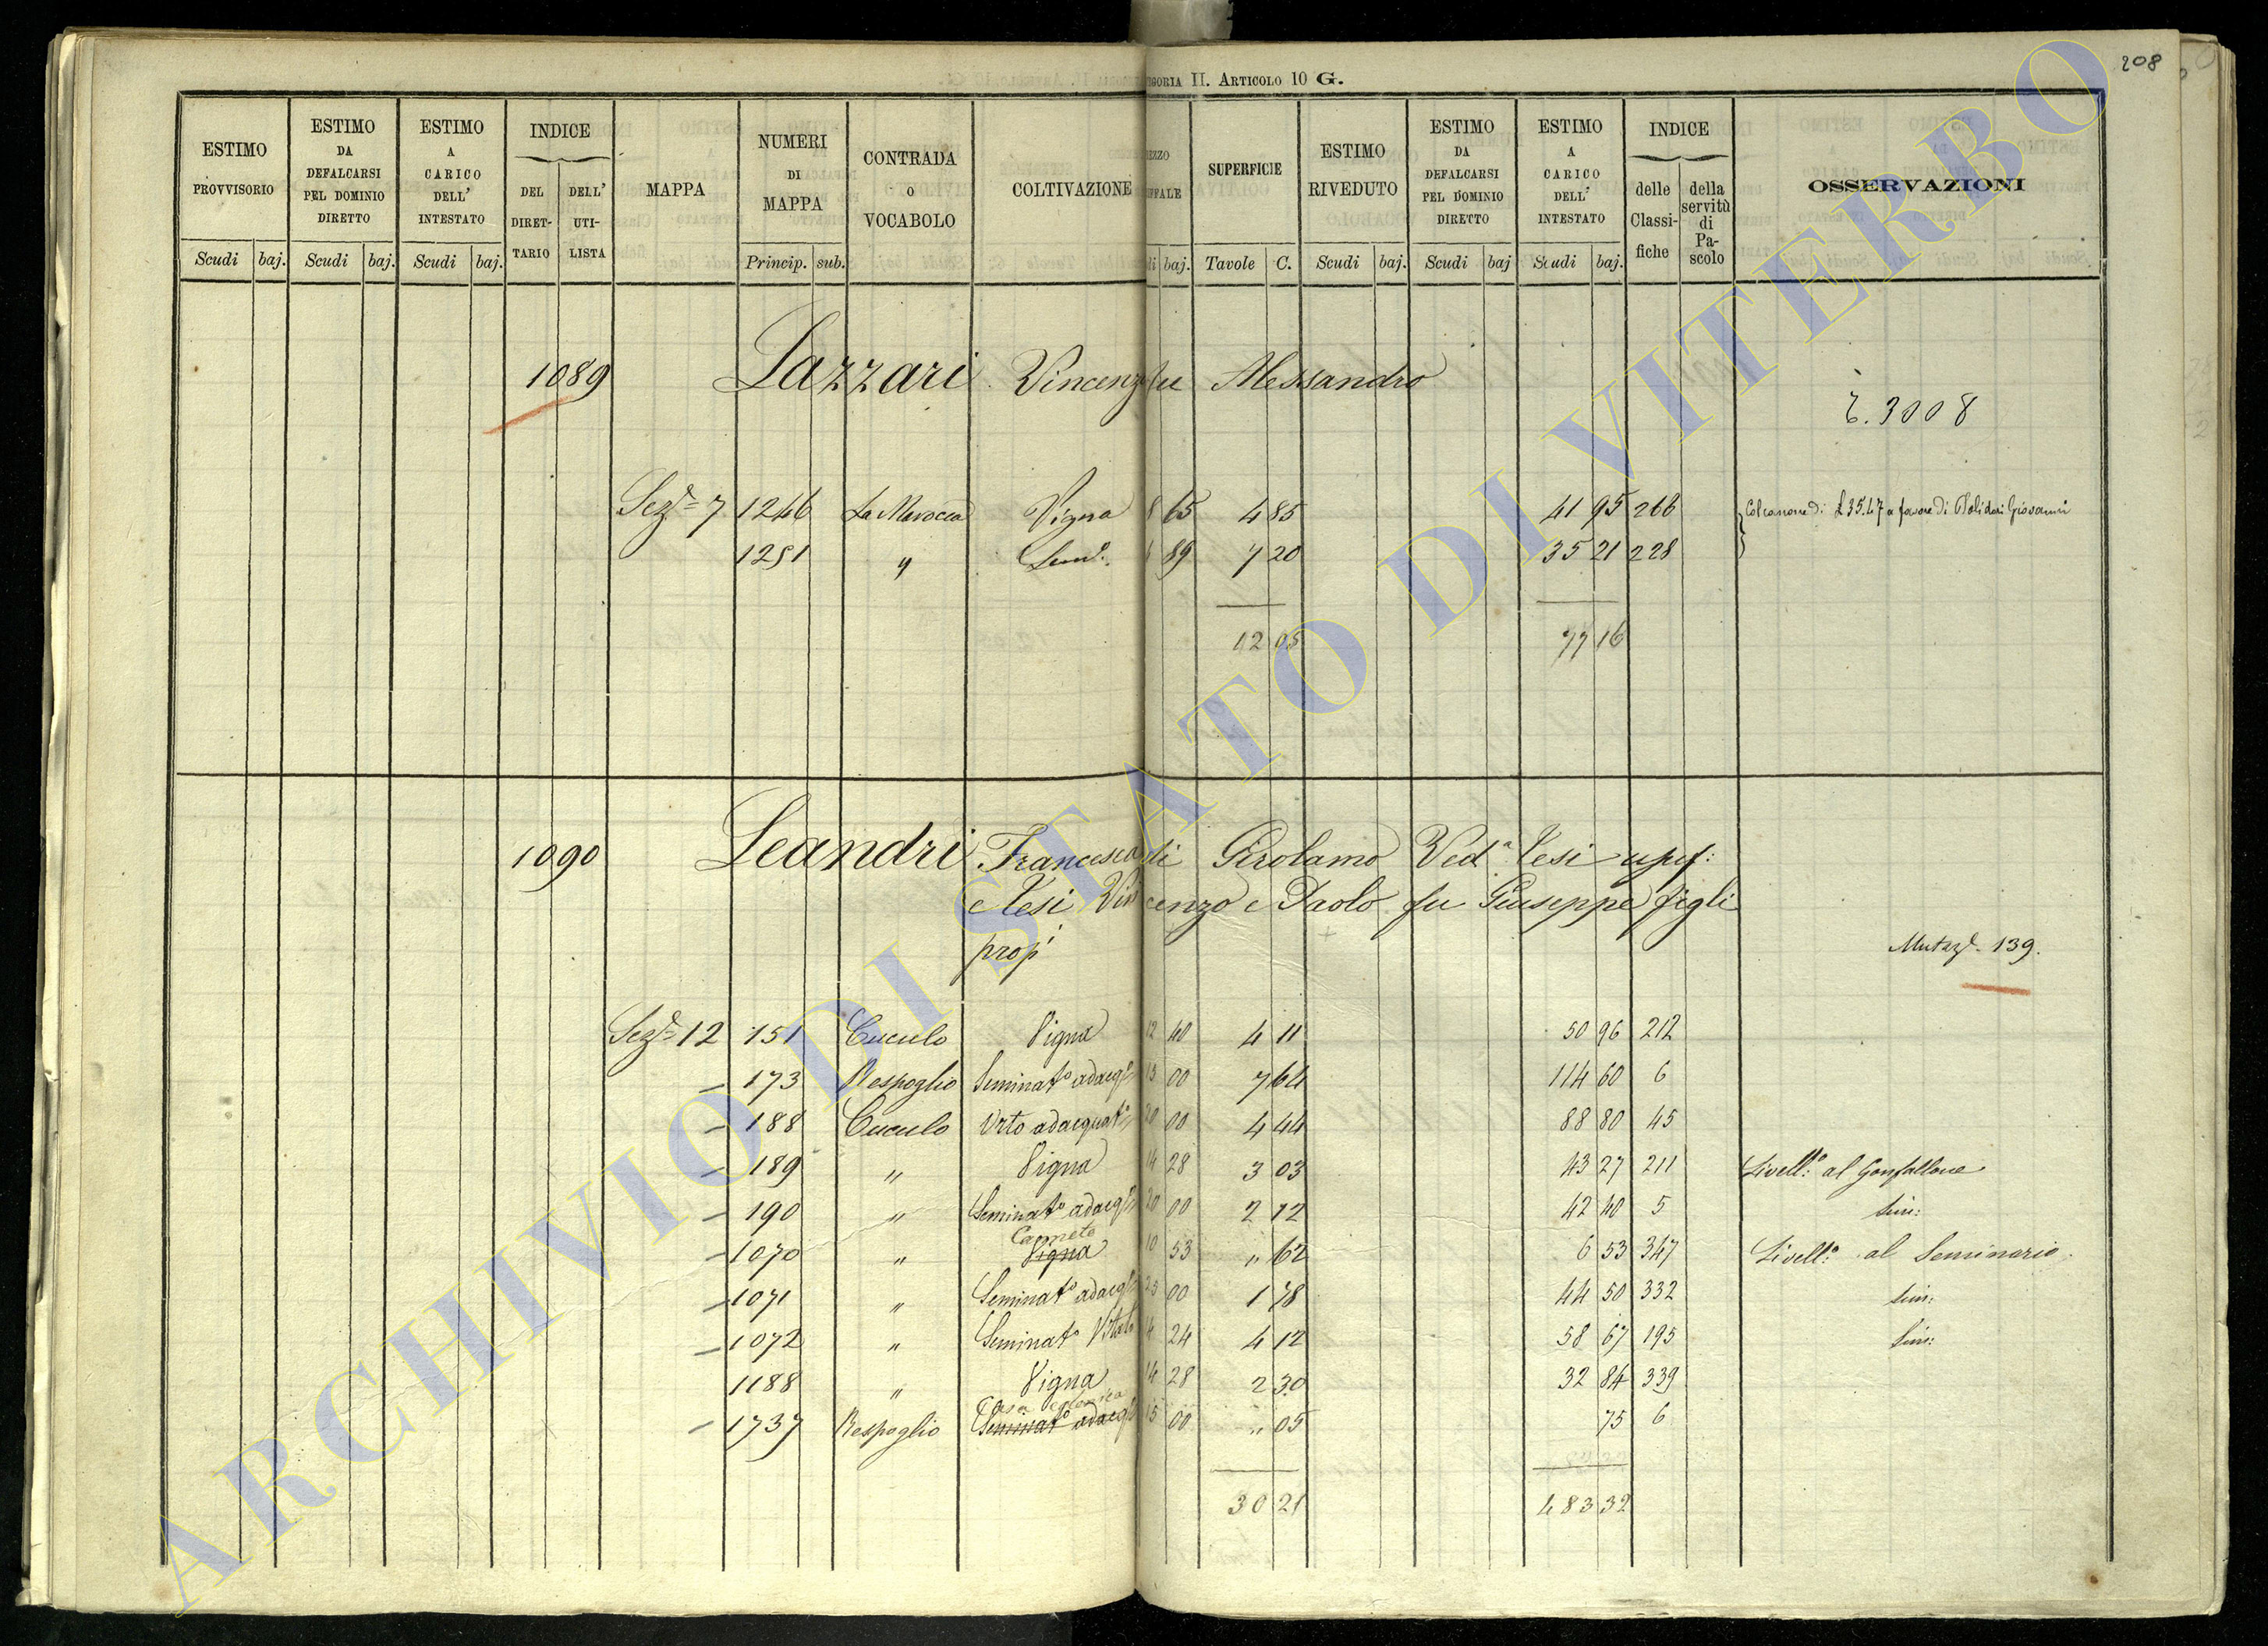 208
CATEGORIA II. ARTICOLO 10 G.
ESTIMO PROVVISORIO | ESTIMO DA DEFALCARSI PEL DOMINIO DIRETTO | ESTIMO A CARICO DELL' INTESTATO | INDICE DEL DIRETTARIO DELL' UTILISTA | MAPPA | NUMERI DI MAPPA | CONTRADA O VOCABOLO | COLTIVAZIONE | SUPERFICIE | ESTIMO RIVEDUTO | ESTIMO DA DEFALCARSI PEL DOMINIO DIRETTO | ESTIMO A CARICO DELL' INTESTATO | INDICE delle Classifiche della servitù di Pascolo | OSSERVAZIONI
Scudi baj. Scudi baj. Scudi baj. Princip. sub. baj. Tavole C. Scudi baj. Scudi baj Scudi baj.
1089 Lazzari Vincenzo fu Alessandro
3008
Sez.e 7 1246 Vigna 8 65 4 85 41 95 266 di £ 35.47 a favore di Giovanni
1251 " Sem.o 89 7 20 35 21 228
12 05 77 16
1090 Leandri Francesca di Girolamo Ved.a Tesi usuf:
e Tesi Vincenzo e Paolo fu Giuseppe figli
prop.i
Mutaz.e 139.
Sez.e 12 151 Cuculo Vigna 12 40 4 11 50 96 212
173 Respoglio Seminat.o adacq.o 15 00 7 64 114 60 6
188 Cuculo Orto adacquat.o 20 00 4 44 88 80 45
189 " Vigna 14 28 3 03 43 27 211 Livell.o al Gonfallone
190 " Seminat.o adacq.o 20 00 2 12 42 40 5 Sim:
Canneto
1070 " Vigna 10 53 " 62 6 53 347 Livell.o al Seminario
1071 " Seminat.o adacq.o 25 00 1 78 44 50 332 Sim:
1072 " Seminat.o Vitato 14 24 4 12 58 67 195 Sim:
1188 " Vigna 14 28 2 30 32 84 339
Casa colonica
1737 Respoglio Seminat.o adacq.o 15 00 " 05 75 6
30 21 483 32
ARCHIVIO DI STATO DI VITERBO